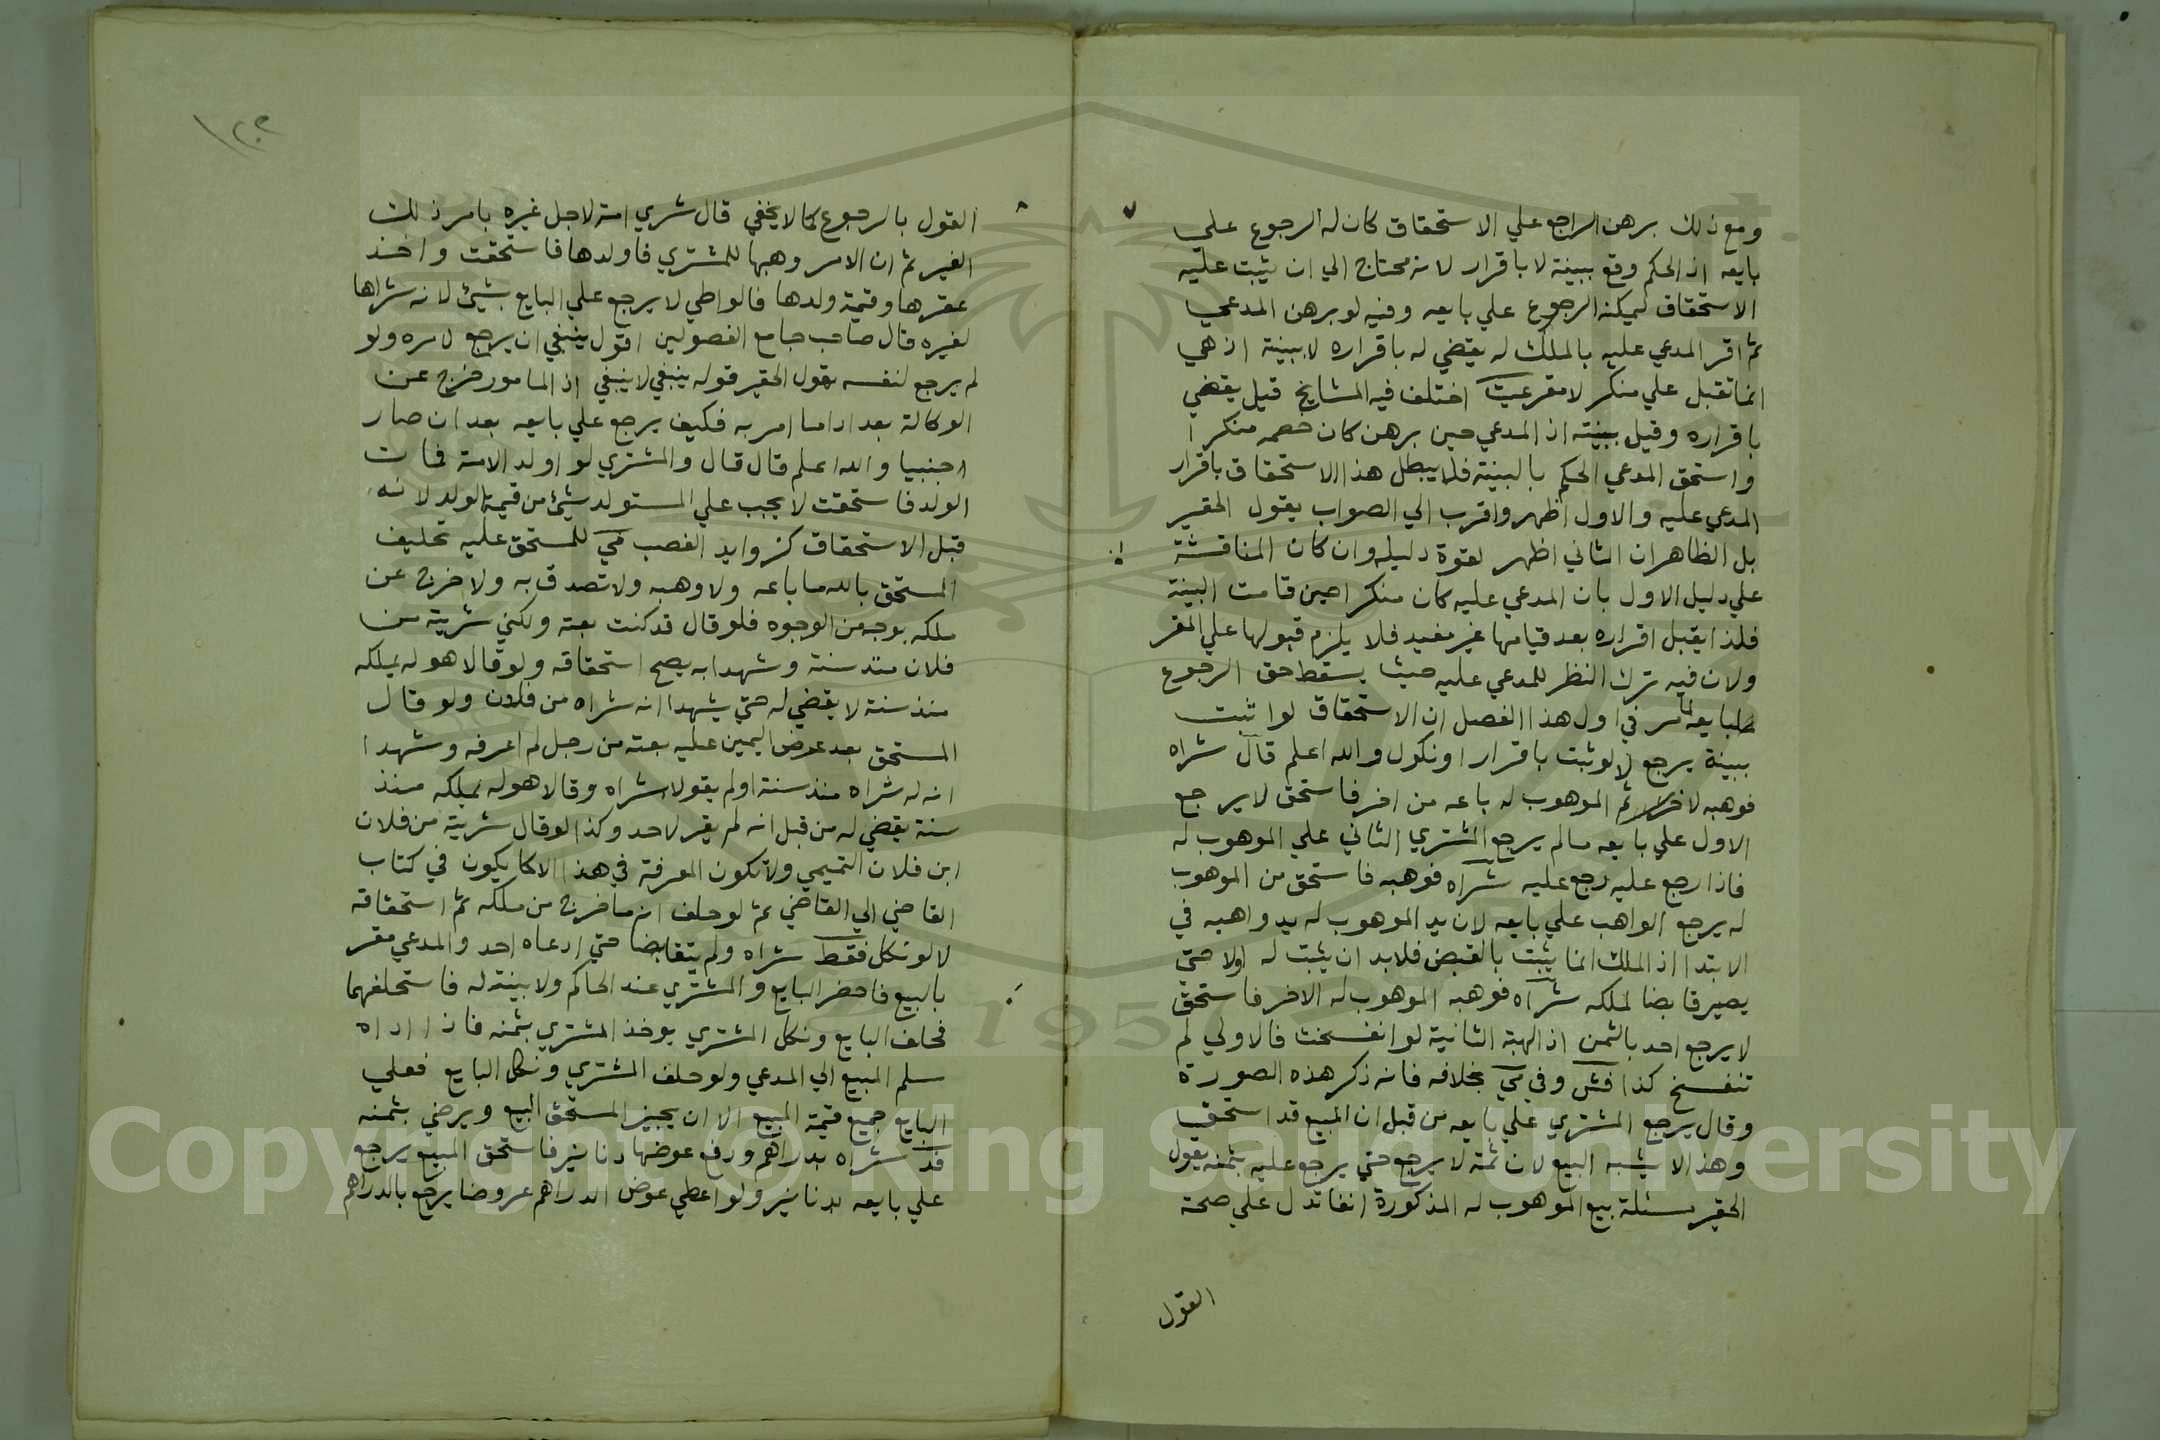 ومع ذلك برهن الراجع علي الاستحقاق كان له الرجوع علي
بايعه اذ الحكم وقع ببينة لا باقرار لانه محتاج الي ان يثبت عليه
الاستحقاق ليمكنه الرجوع علي بايعه وفيه لو برهن المدعي
ثم اقر المدعي عليه بالملك له يقضي له باقراره لا ببينة اذ هي
انما تقبل علي منكر لا مقر عيب اختلف فيه المشايخ قيل يقضي
باقراره وقيل ببينته اذ المدعي حين برهن كان خصمه منكرا
واستحق المدعي الحكم بالبينة فلا يبطل هذا الاستحقاق باقرار
المدعي عليه والاول اظهر واقرب الي الصواب يقول الحقير
بل الظاهر ان الثاني اظهر لقوة دليله وان كان المناقشة
علي دليل الاول بان المدعي عليه كان منكرا حين قامت البينة
فلذا يقبل اقراره بعد قيامها غير مفيد فلا يلزم قبولها علي المقر
ولان فيه ترك النظر للمدعي عليه حيث يسقط حق الرجوع
بايعه لما مر في اول هذا الفصل ان الاستحقاق لو اثبت
ببينة يرجع لا لو ثبت باقرار او نكول والله اعلم قال شراه
فوهبه لاخر ثم الموهوب له باعه من اخر فاستحق لا يرجع
الاول علي بايعه مالم يرجع المشتري الثاني علي الموهوب له
فاذا رجع عليه رجع عليه شراه فوهبه فاستحق من الموهوب
له يرجع الواهب علي بايعه لان يد الموهوب له يد واهبه في
الابتدا اذ الملك انما يثبت بالقبض فلا بد ان يثبت له اولا حتي
يصير قابضا لملكه شراه فوهبه الموهوب له الاخر فاستحق
لا يرجع احد بالثمن اذ الهبة الثانية لو انفسخت فالاولي لم
تنفسخ كذا فش وفي مي بخلافه فانه ذكر هذه الصورة
وقال يرجع المشتري علي بايعه من قبل ان المبيع قد استحق
وهذا لا يشبه البيع لان ثمة لا يرجع حتي يرجع عليه بثمنه يقول
الحقير مسئلة بيع الموهوب له المذكورة انفا تدل علي صحة
القول
١٢٥
القول بالرجوع كما لا يخفي قال شري امة لاجل غيره بامر ذلك
الغير ثم ان الامر وهبها للمشتري فاولدها فاستحقت واخذ
عقرها وقيمة ولدها فالواطي لا يرجع علي البايع بشيئ لانه شراها
لغيره قال صاحب جامع الفصولين اقول ينبغي ان يرجع لامره ولو
لم يرجع لنفسه يقول الحقير قوله ينبغي لا ينبغي اذ المامور خرج عن
الوكالة بعد اداما امر به فكيف يرجع علي بايعه بعد ان صار
اجنبيا والله اعلم قال قال والمشتري لو اولد الامة فمات
الولد فاستحقت لا يجب علي المستولد شيئ من قيمة الولد لانه
قبل الاستحقاق كزوايد الغصب مي للمستحق عليه تحليف
المستحق بالله ما باعه ولا وهبه ولا تصدق به ولا خرج عن
ملكه بوجه من الوجوه فلو قال قد كنت بعته ولكني شريته من
فلان منذ سنة وشهدا به يصح استحقاقه ولو قالا هو له يملكه
منذ سنة لا يقضي له حتي يشهدا انه شراه من فلان ولو قال
المستحق بعد عرض اليمين عليه بعته من رجل لم اعرفه وشهدا
انه له شراه منذ سنة او لم يقولا شراه وقالا هو له يملكه منذ
سنة يقضي له من قبل انه لم يقر لاحد وكذا لو قال شريته من فلان
ابن فلان التميمي ولا تكون المعرفة في هذا الا كما يكون في كتاب
القاضي الي القاضي ثم لو حلف انه ما خرج من ملكه ثم استحقاقه
لا لو نكل فقط شراه ولم يتقابضا حتي ادعاه احد والمدعي مقر
بالبيع فاحضر البايع والمشتري عند الحاكم ولا بينة له فاستحلفهما
فحلف البايع ونكل المشتري يوخذ المشتري بثمنه فاذا اداه
سلم المبيع الي المدعي ولو حلف المشتري ونكل البايع فعلي
البايع جميع قيمة المبيع الا ان يجيز المستحق البيع ويرضي بثمنه
قد شراه بدراهم ودفع عوضها دنانير فاستحق المبيع يرجع
علي بايعه بدنانير ولو اعطي عوض الدراهم عروضا يرجع بالدراهم
Copyright © King Saud University
1957